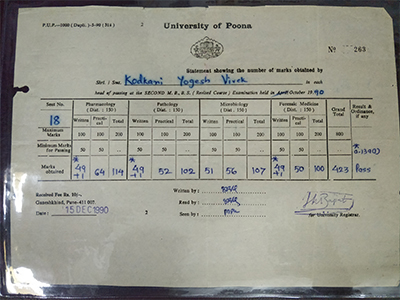 P.U.P.-1000 (Dupl.)-3-90 (Bit.) 2
University of Poona
No 263
Statement showing the number of marks obtained by
Shri / Smt. Kodkani Yogesh Vivek in each
head of passing at the SECOND M. B., B. S. ( Revised Course ) Examination held in October 1990
Seat No. Pharmacology (Dist. : 150) Pathology (Dist. : 150) Microbiology (Dist. : 150) Forensic Medicine (Dist. : 150) Grand Total Result & Ordinance, if any
18 Written Practical Total Written Practical Total Written Practical Total Written Practical Total
Maximum Marks 100 100 200 100 100 200 100 100 200 100 100 200 800
Minimum Marks for Passing 50 50 ... 50 50 ... 50 50 ... 50 50 ...
Marks obtained * 49 +1 64 114 * 49 +1 52 102 51 56 107 * 49 +1 50 100 423 Pass
Received Fee Rs. 10/-.
Ganeshkhind, Pune-411 007.
Date : 15 DEC 1990 2
Written by :
Read by :
Seen by :
for University Registrar.